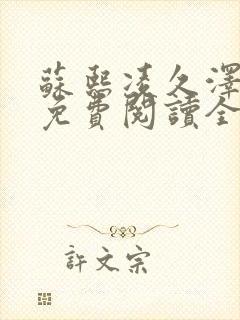 蘇熙凌久澤
免費閱讀全
許文宗